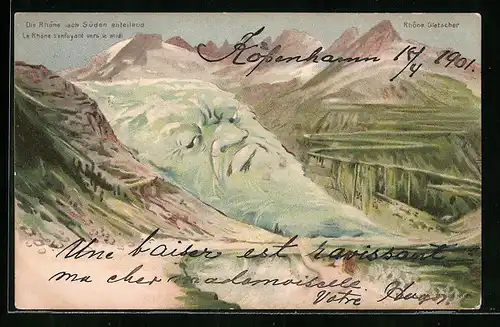 Die Rhône nach Süden enteilend
Le Rhône s'enfuyant vers le midi
Rhône Gletscher
Köpenhamn 18/4 1901.
Une baiser est ravissant
ma cher mademoiselle
Votre